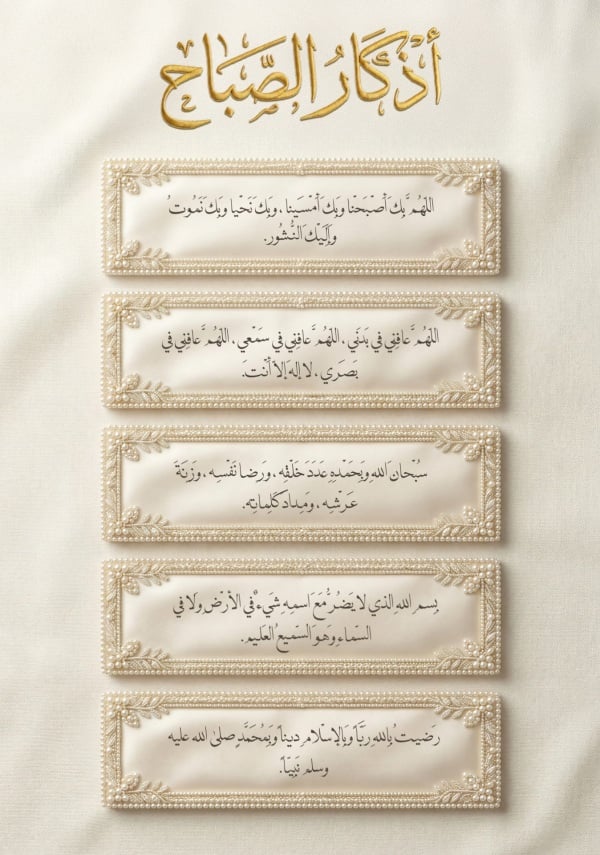 أذكَارُ الصَّبَاح
اللهُمَّ بِكَ أَصْبَحْنا وبِكَ أَمْسَينا، وبِكَ نَحْيا وبِكَ نَمُوتُ
وإِلَيْكَ النُّشُور.
اللهُمَّ عافِنِي في بَدَنِي، اللهُمَّ عافِنِي في سَمْعِي، اللهُمَّ عافِنِي في
بَصَرِي، لا إله إلا أَنْتَ.
سُبْحان اللهِ وبِحَمْدِهِ عَدَدَ خَلْقِه، ورِضا نَفْسِه، وزِنَةَ
عَرْشِه، ومِداد كَلِماتِه.
بِسمِ اللهِ الذي لا يَضُرُّ مَعَ اسمِهِ شَيءٌ في الأرْضِ ولا في
السّماءِ وَهوَ السّمِيعُ العَلِيم.
رَضِيتُ بِاللهِ رَبًّا وَبِالإسْلامِ دِيناً وبِمُحَمَّدٍ صلى الله عليه
وسلم نَبِيّاً.